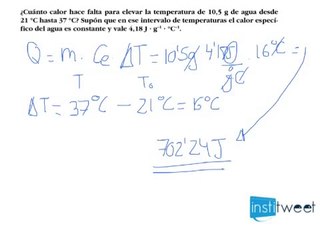 ¿Cuánto calor hace falta para elevar la temperatura de 10,5 g de agua desde
21 °C hasta 37 °C? Supón que en ese intervalo de temperaturas el calor especí-
fico del agua es constante y vale 4,18 J · g⁻¹ · °C⁻¹.
Q = m. Ce ΔT = 10'5g 4'18 J/g°C 16°C =
T T₀
ΔT = 37°C - 21°C = 16°C
702'24 J
institweet